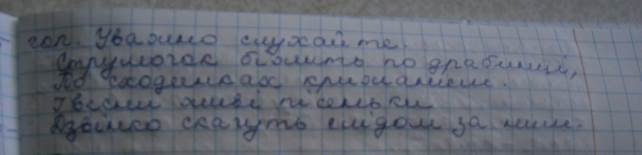 гол. Уважно слухайте.
Струмочок біжить по драбинці,
По сходинках крижаних.
І весни живі пісеньки
Дзвінко скачуть слідом за ним.